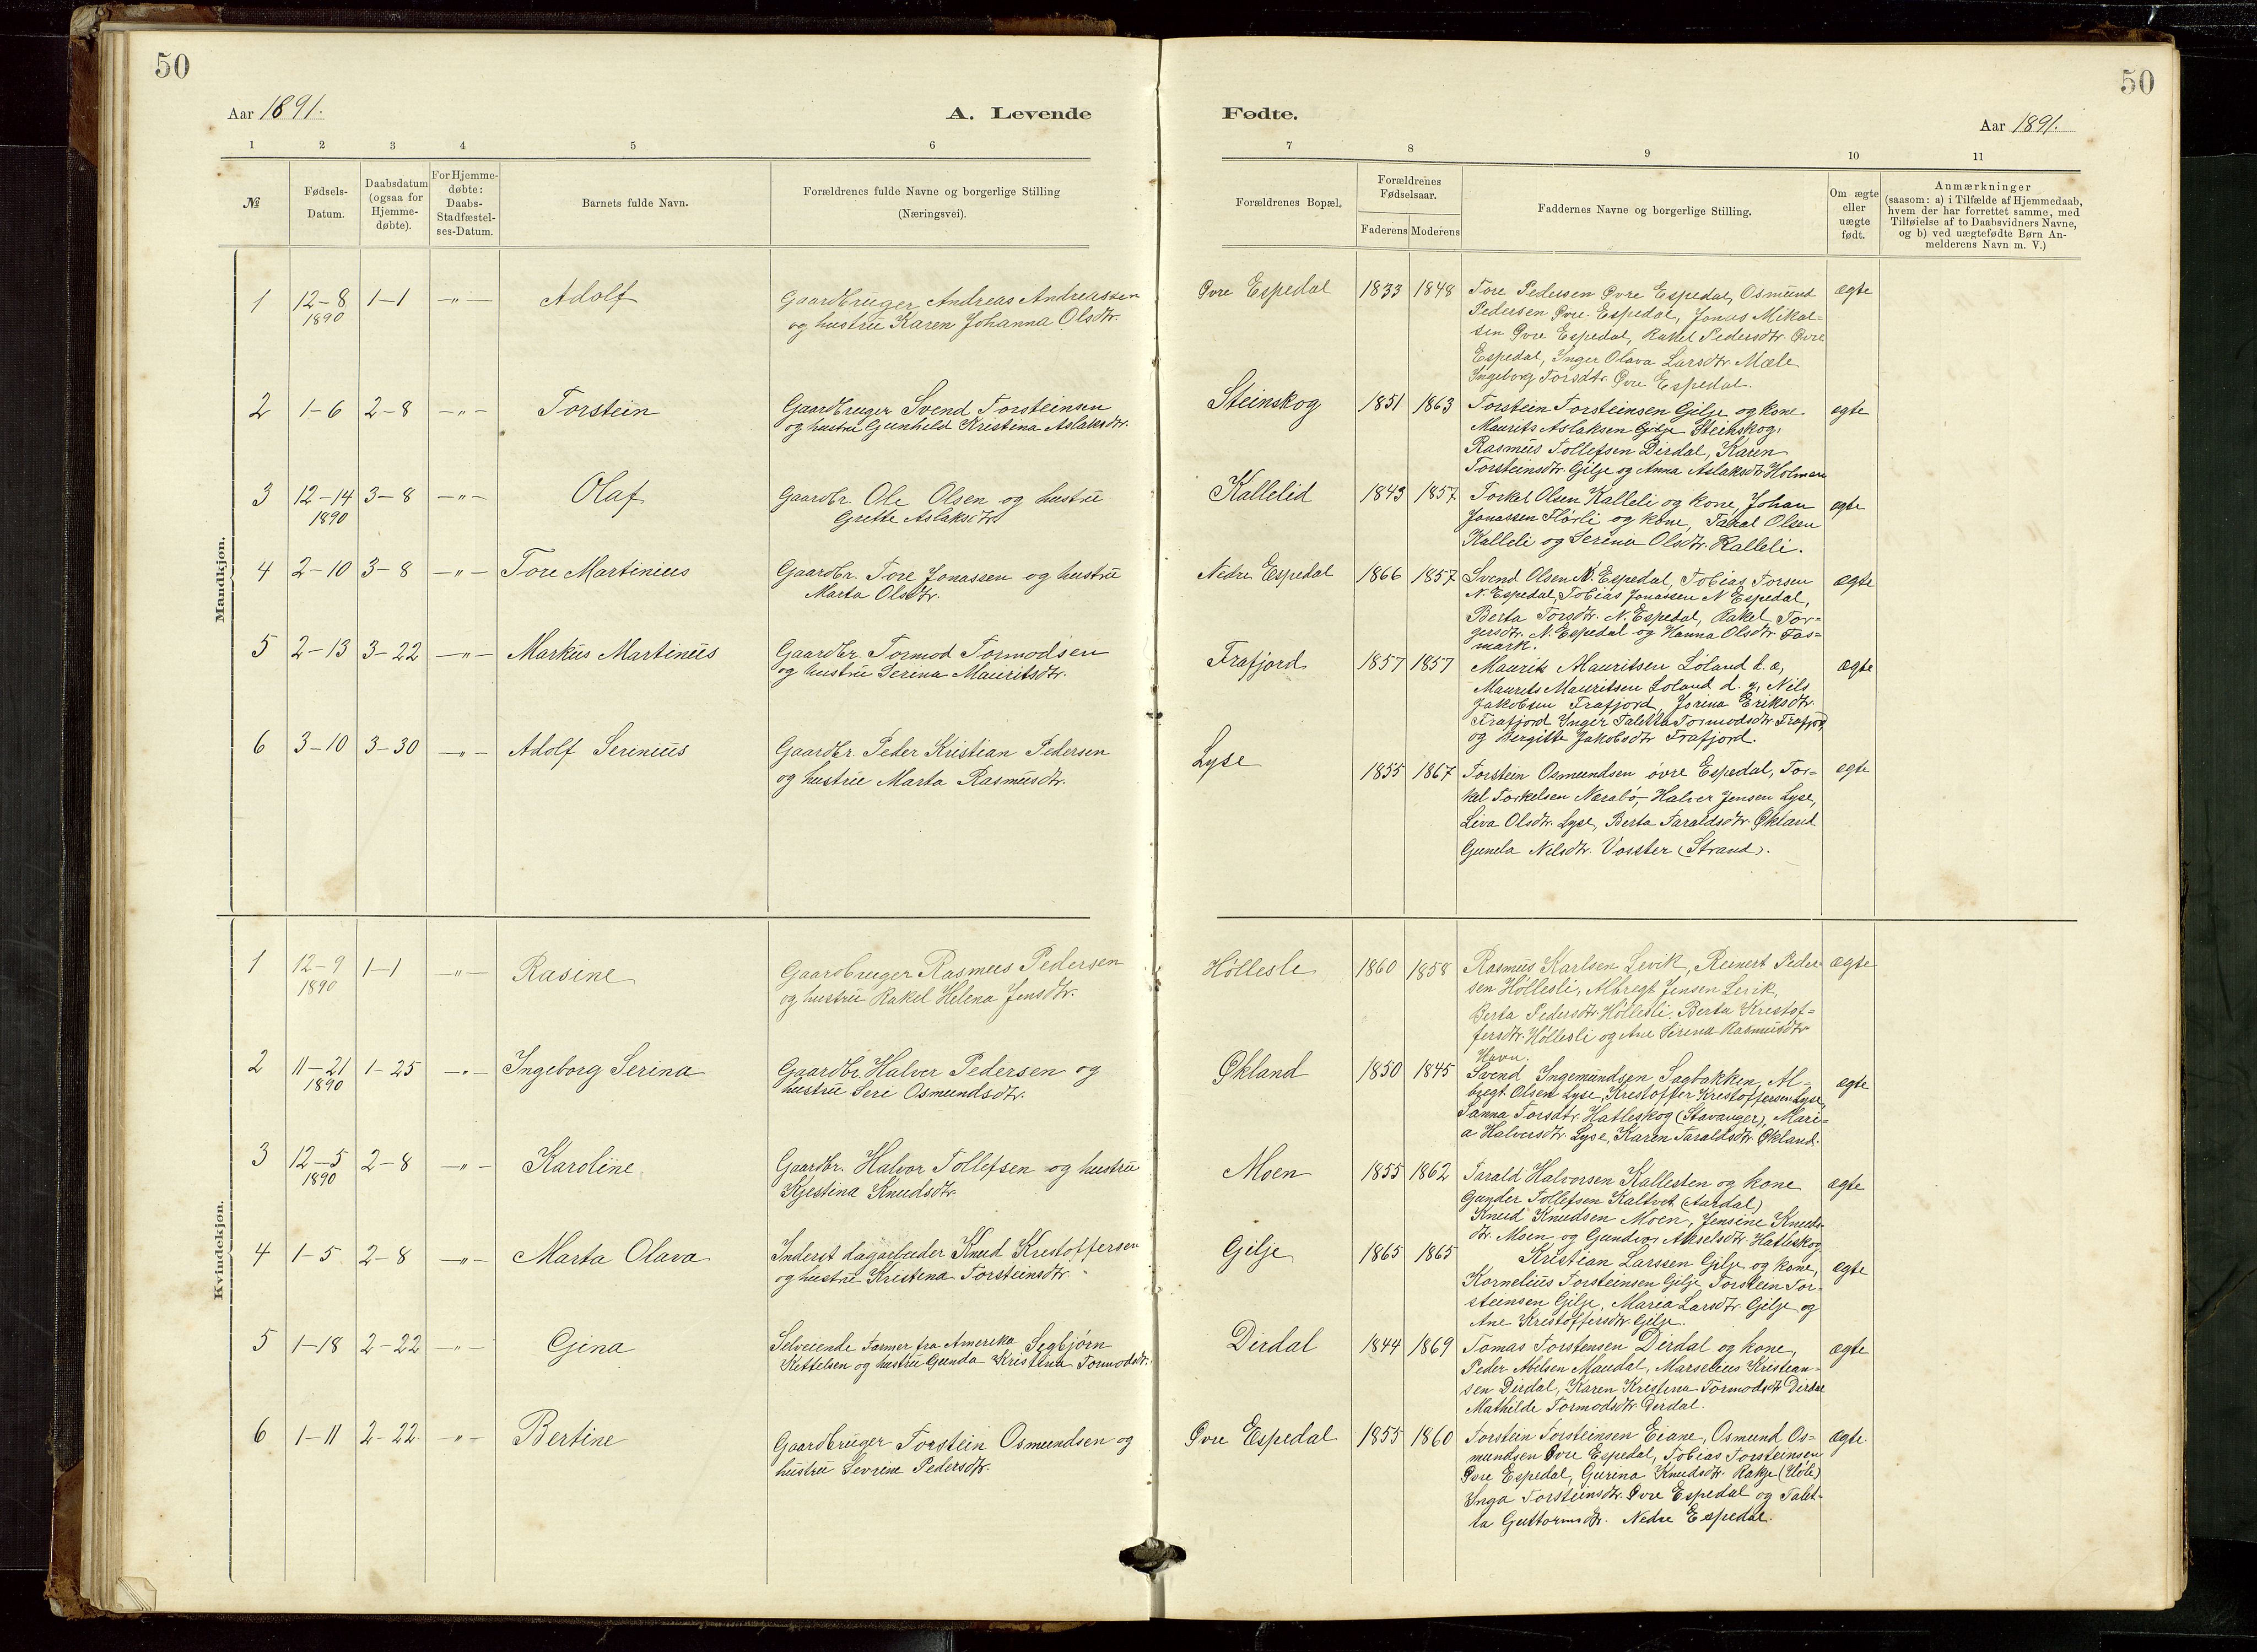 50
50
Aar 1891.
A. Levende
Fødte.
Aar 1891.
1 2 3 4 5 6 7 8 9 10 11
№
Fødsels-
Datum.
Daabsdatum
(ogsaa for
Hjemme-
døbte).
For Hjemme-
døbte:
Daabs-
Stadfæstel-
ses-Datum.
Barnets fulde Navn.
Forældrenes fulde Navne og borgerlige Stilling
(Næringsvei).
Forældrenes Bopæl.
Forældrenes
Fødselsaar.
Faderens Moderens
Faddernes Navne og borgerlige Stilling.
Om ægte
eller
uægte
født.
Anmærkninger
(saasom: a) i Tilfælde af Hjemmedaab,
hvem der har forrettet samme, med
Tilføielse af to Daabsvidners Navne,
og b) ved uægtefødte Børn An-
melderens Navn m. V.)
Mandkjøn.
1 12-8 1-1 -"- Adolf
1890
Gaardbruger Andreas Andreassen
og hustru Karen Johanna Olsdtr.
Øvre Espedal 1833 1848
Tore Pedersen Øvre Espedal, Osmund
Pedersen Øvre Espedal, Jonas Mikal=
sen Øvre Espedal, Rakel Pedersdtr. Øvre
Espedal, Inger Olava Larsdtr. Mæle
Ingeborg Torsdtr. Øvre Espedal.
ægte
2 1-6 2-8 -"- Torstein
Gaardbruger Svend Torsteinsen
og hustru Gunhild Kristina Aslaksdtr.
Steinskog 1851 1863
Torstein Torsteinsen Gilje og kone
Maurits Aslaksen Gilje Steinskog,
Rasmus Tollefsen Dirdal, Karen
Torsteinsdtr. Gilje og Anna Aslaksdtr Holmen
ægte
3 12-14 3-8 -"- Olaf
1890
Gaardbr. Ole Olsen og hustru
Grette Aslaksdtr.
Kallelid 1843 1857
Torkel Olsen Kalleli og kone, Johan
Jonassen Flørli og kone, Taral Olsen
Kalleli og Serina Olsdtr. Kalleli.
ægte
4 2-10 3-8 -"- Tore Martinius
Gaardbr. Tore Jonassen og hustru
Marta Olsdtr.
Nedre Espedal 1866 1857
Svend Olsen N. Espedal, Tobias Torsen
N. Espedal, Tobias Jonassen N Espedal,
Berta Torsdtr. N. Espedal, Rakel Tor=
gersdtr. N. Espedal og Hanna Olsdtr. Fos=
mark.
ægte
5 2-13 3-22 -"- Markus Martinus
Gaardbr. Tormod Tormodsen
og hustru Serina Mauritsdtr.
Frafjord 1857 1857
Maurits Mauritsen Løland d. æ,
Maurits Mauritsen Løland d. y, Nils
Jakobsen Frafjord, Jorina Eriksdtr.
Frafjord Inger Taletta Tormodsdtr Frafjord
og Bergitte Jakobsdtr Frafjord.
ægte
6 3-10 3-30 -"- Adolf Serinius
Gaardbr. Peder Kristian Pedersen
og hustru Marta Rasmusdtr.
Lyse 1855 1867
Torstein Osmundsen øvre Espedal, Tor=
kel Torkelsen Nærabø, Halver Jensen Lyse,
Liva Olsdtr. Lyse, Berta Taraldsdtr. Økland
Gunela Nilsdtr. Vosster (Strand).
ægte
Kvindekjøn.
1 12-9 1-1 -"- Rasine
1890
Gaardbruger Rasmus Pedersen
og hustru Rakel Helena Jensdtr.
Høllesle 1860 1858
Rasmus Karlsen Levik, Reinert Peder
sen Høllesli, Albregt Jensen Levik,
Berta Pedersdtr. Høllesli, Berta Kristof=
fersdtr. Høllesli og Ane Serina Rasmusdtr
Havn.
ægte
2 11-21 1-25 -"- Ingeborg Serina
1890
Gaardbr. Halver Pedersen og
hustru Seri Osmundsdtr.
Økland 1850 1845
Svend Ingemundsen Sagbakken, Al=
bregt Olsen Lyse, Kristoffer Kristoffersen Lyse,
Sanna Torsdtr. Hatleskog (Stavanger), Mari=
a Halversdtr. Lyse, Karen Taraldsdtr. Økland.
ægte
3 12-5 2-8 -"- Karoline
1890
Gaardbr. Halvor Tollefsen og hustru
Kjestina Knudsdtr.
Moen 1855 1862
Tarald Halvorsen Kallesten og kone
Gunder Tollefsen Kaltvet (Aardal)
Knud Knudsen Moen, Jensine Knuds-
dtr. Moen og Gundvor Akselsdtr. Hatleskog
ægte
4 1-5 2-8 -"- Marta Olava
Inderst dagarbeider Knud Kristoffersen
og hustru Kristena Torsteinsdtr.
Gilje 1865 1865
Kristian Larssen Gilje og kone,
Kornelius Torsteinsen Gilje, Torstein Tor-
steinsen Gilje, Maria Larsdtr. Gilje og
Ane Kristoffersdtr. Gilje.
ægte
5 1-18 2-22 -"- Gjina
Selveiende Farmer fra Amerika Segbjørn
Kettelsen og hustru Gunda Kristina Tormodsdtr.
Dirdal 1844 1869
Tomas Torstensen Dirdal og kone,
Peder Abelsen Maudal, Marselius Kristian-
sen Dirdal, Karen Kristina Tormodsdtr Dirdal
Mathilde Tormodsdtr. Dirdal.
ægte
6 1-11 2-22 -"- Bertine
Gaardbruger Torstein Osmundsen og
hustru Sevrine Pedersdtr.
Øvre Espedal 1855 1860
Torstein Torsteinsen Eiane, Osmund Os=
mundsen Øvre Espedal, Tobias Torsteinsen
Øvre Espedal, Gurina Knudsdtr. Rakje (Høle)
Inga Torsteinsdtr. Øvre Espedal og Talet-
ta Guttormsdtr. Nedre Espedal.
ægte.